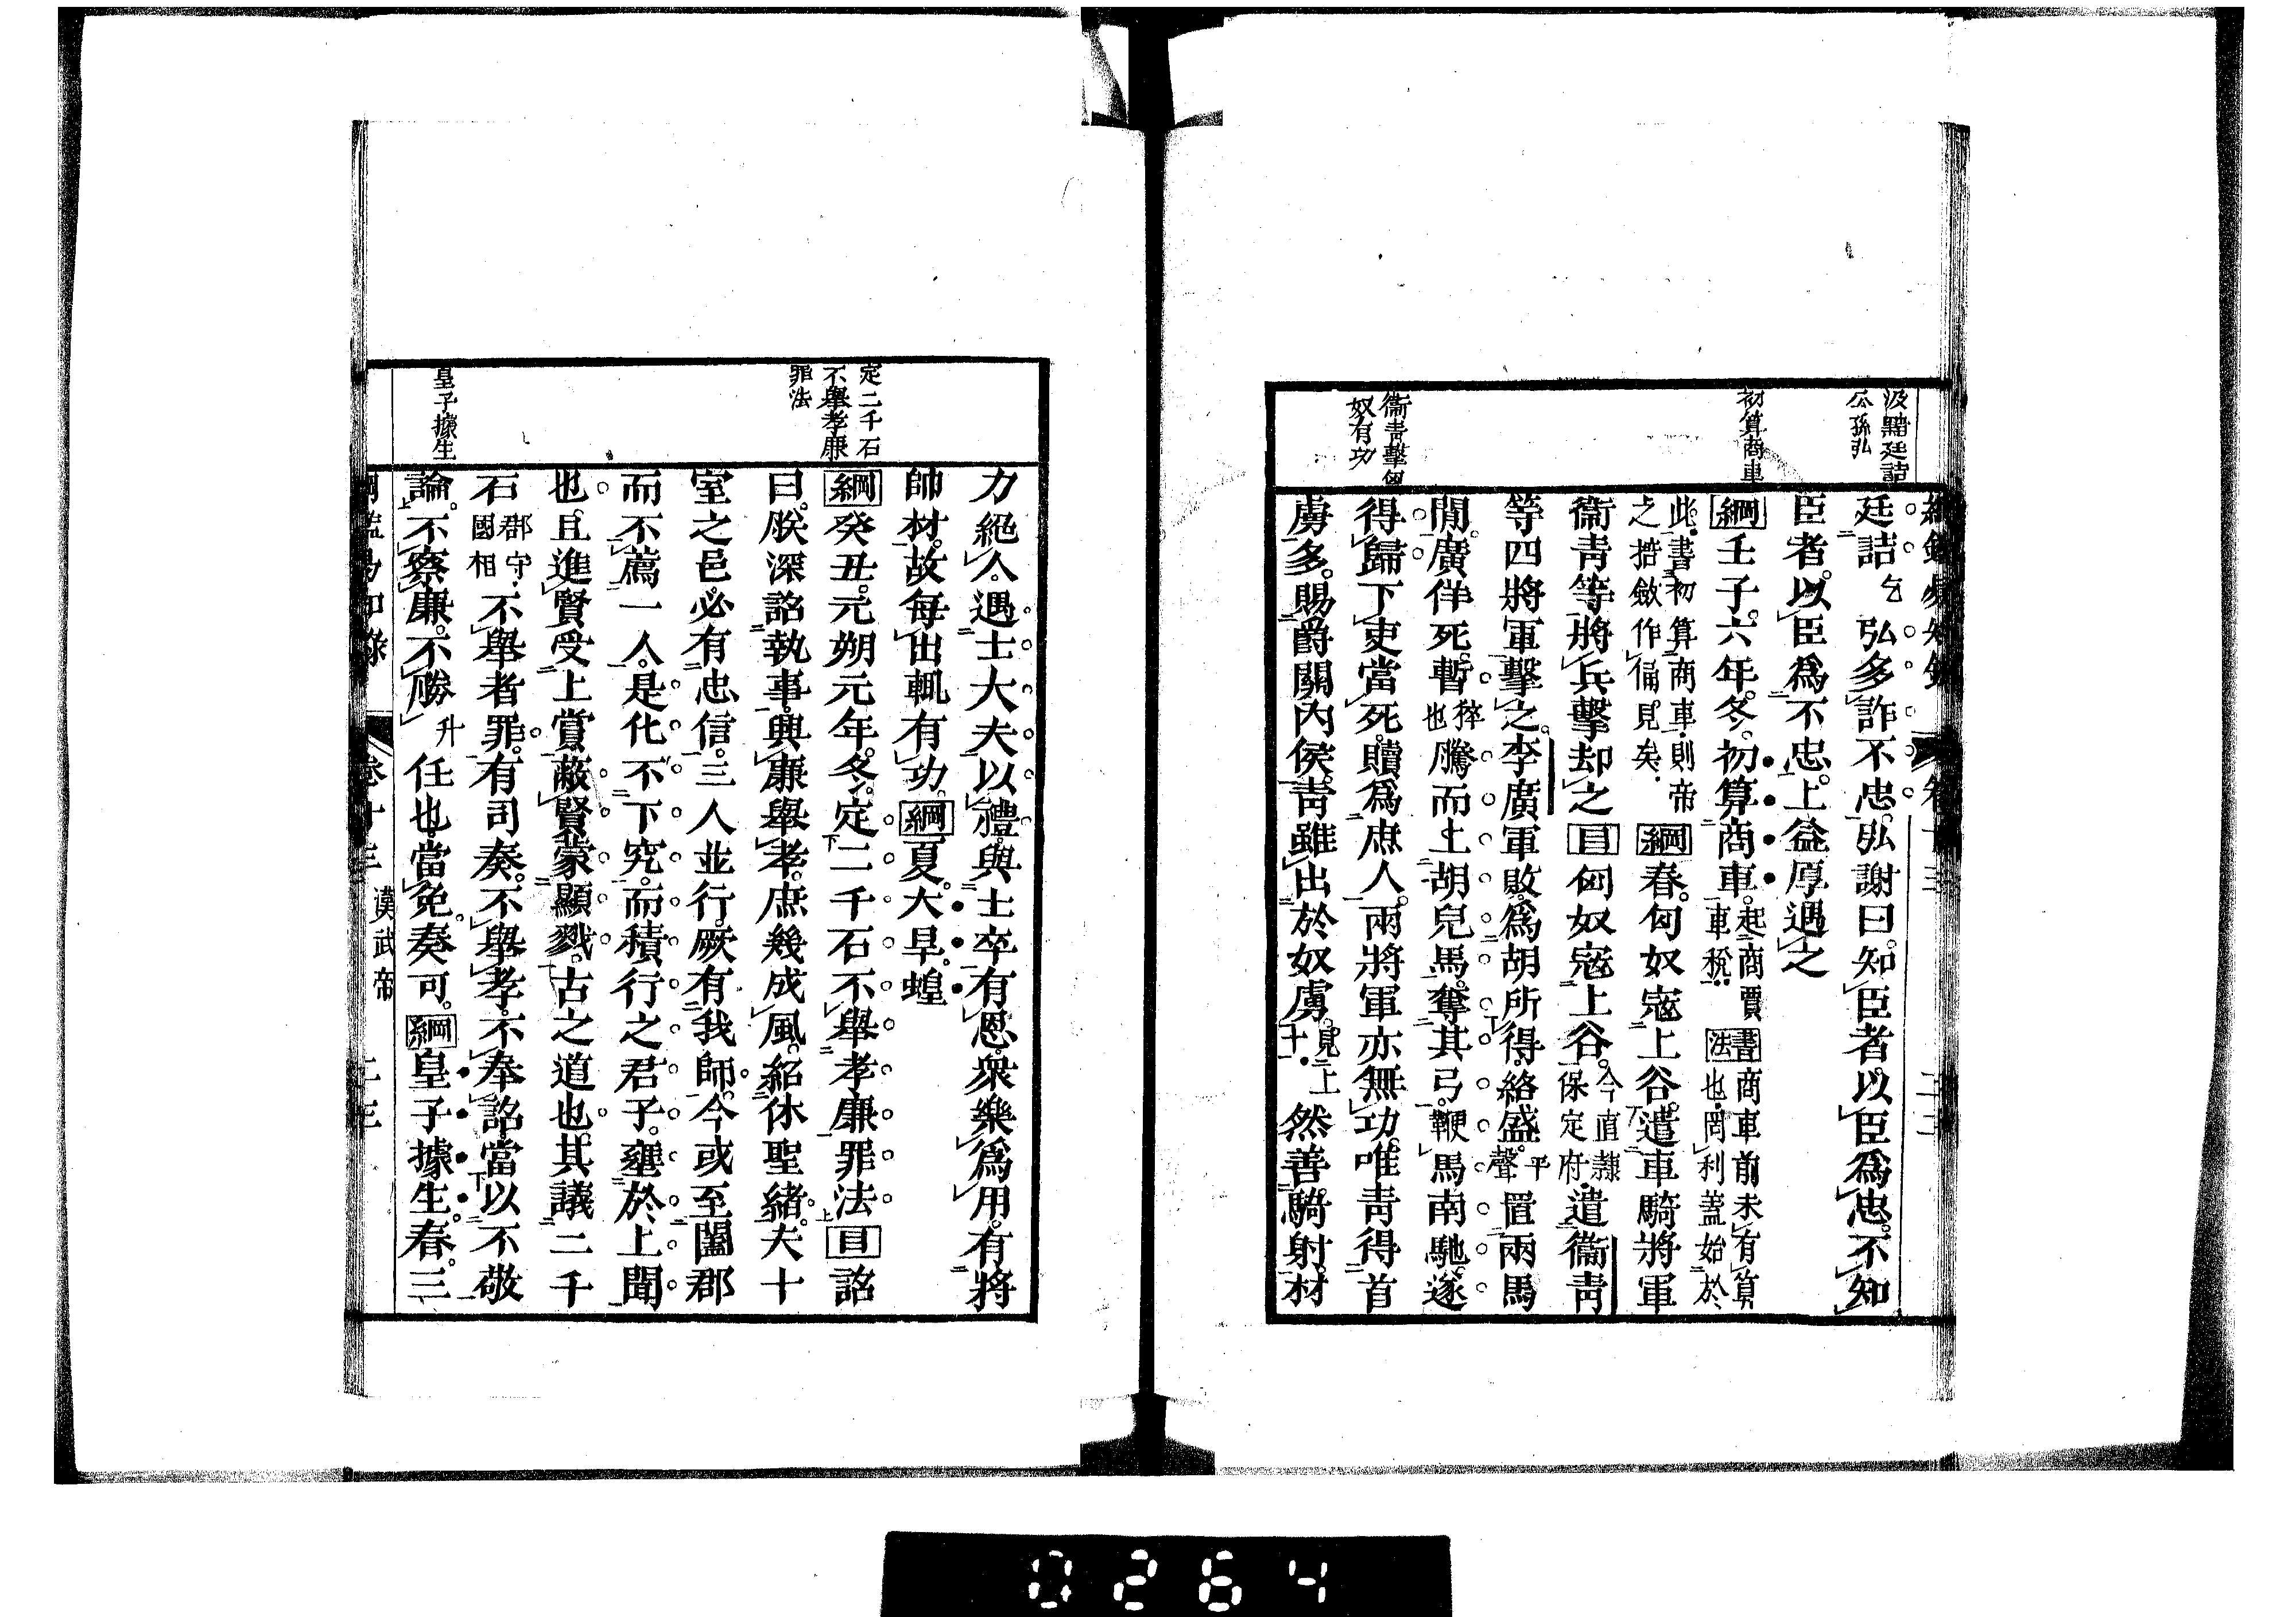 汲黯廷詰
公孫弘
初算商車
衞靑擊匈
奴有功
廷詰乞弘多詐不忠。弘謝曰。知臣者。以臣爲忠。不知
臣者。以臣爲不忠。上益厚遇之
綱壬子。六年。冬。初算商車。起商賈車稅。書法商車前未有算也。罔利蓋始於
此。書初算商車。則帝之掊斂作俑見矣。綱春。匈奴寇上谷。遣車騎將軍
衞靑等將兵擊却之目匈奴寇上谷。今直隸保定府。遣衞靑
等四將軍擊之。李廣軍敗。爲胡所得。絡盛平聲置兩馬
閒。廣佯死。暫猝也騰而上胡兒馬。奪其弓。鞭馬南馳。遂
得歸。下吏當死。贖爲庶人。兩將軍亦無功。唯靑得首
虜多。賜爵關內侯。靑雖出於奴虜。見上十。然善騎射。材
定二千石
不舉孝廉
罪法
皇子據生
力絕人。遇士大夫以禮。與士卒有恩。衆樂爲用。有將
帥材。故每出輒有功。綱夏。大旱。蝗
綱癸丑。元朔元年。冬。定二千石不舉孝廉罪法目詔
曰。朕深詔執事。興廉舉孝。庶幾成風。紹休聖緒。夫十
室之邑。必有忠信。三人並行。厥有我師。今或至闔郡
而不薦一人。是化不下究。而積行之君子。壅於上聞
也。且進賢受上賞。蔽賢蒙顯戮。古之道也。其議二千
石郡守。國相。不舉者罪。有司奏。不舉孝。不奉詔。當以不敬
論。不察廉。不勝升任也。當免。奏可。綱皇子據生。春。三
卷十三 漢武帝 二三